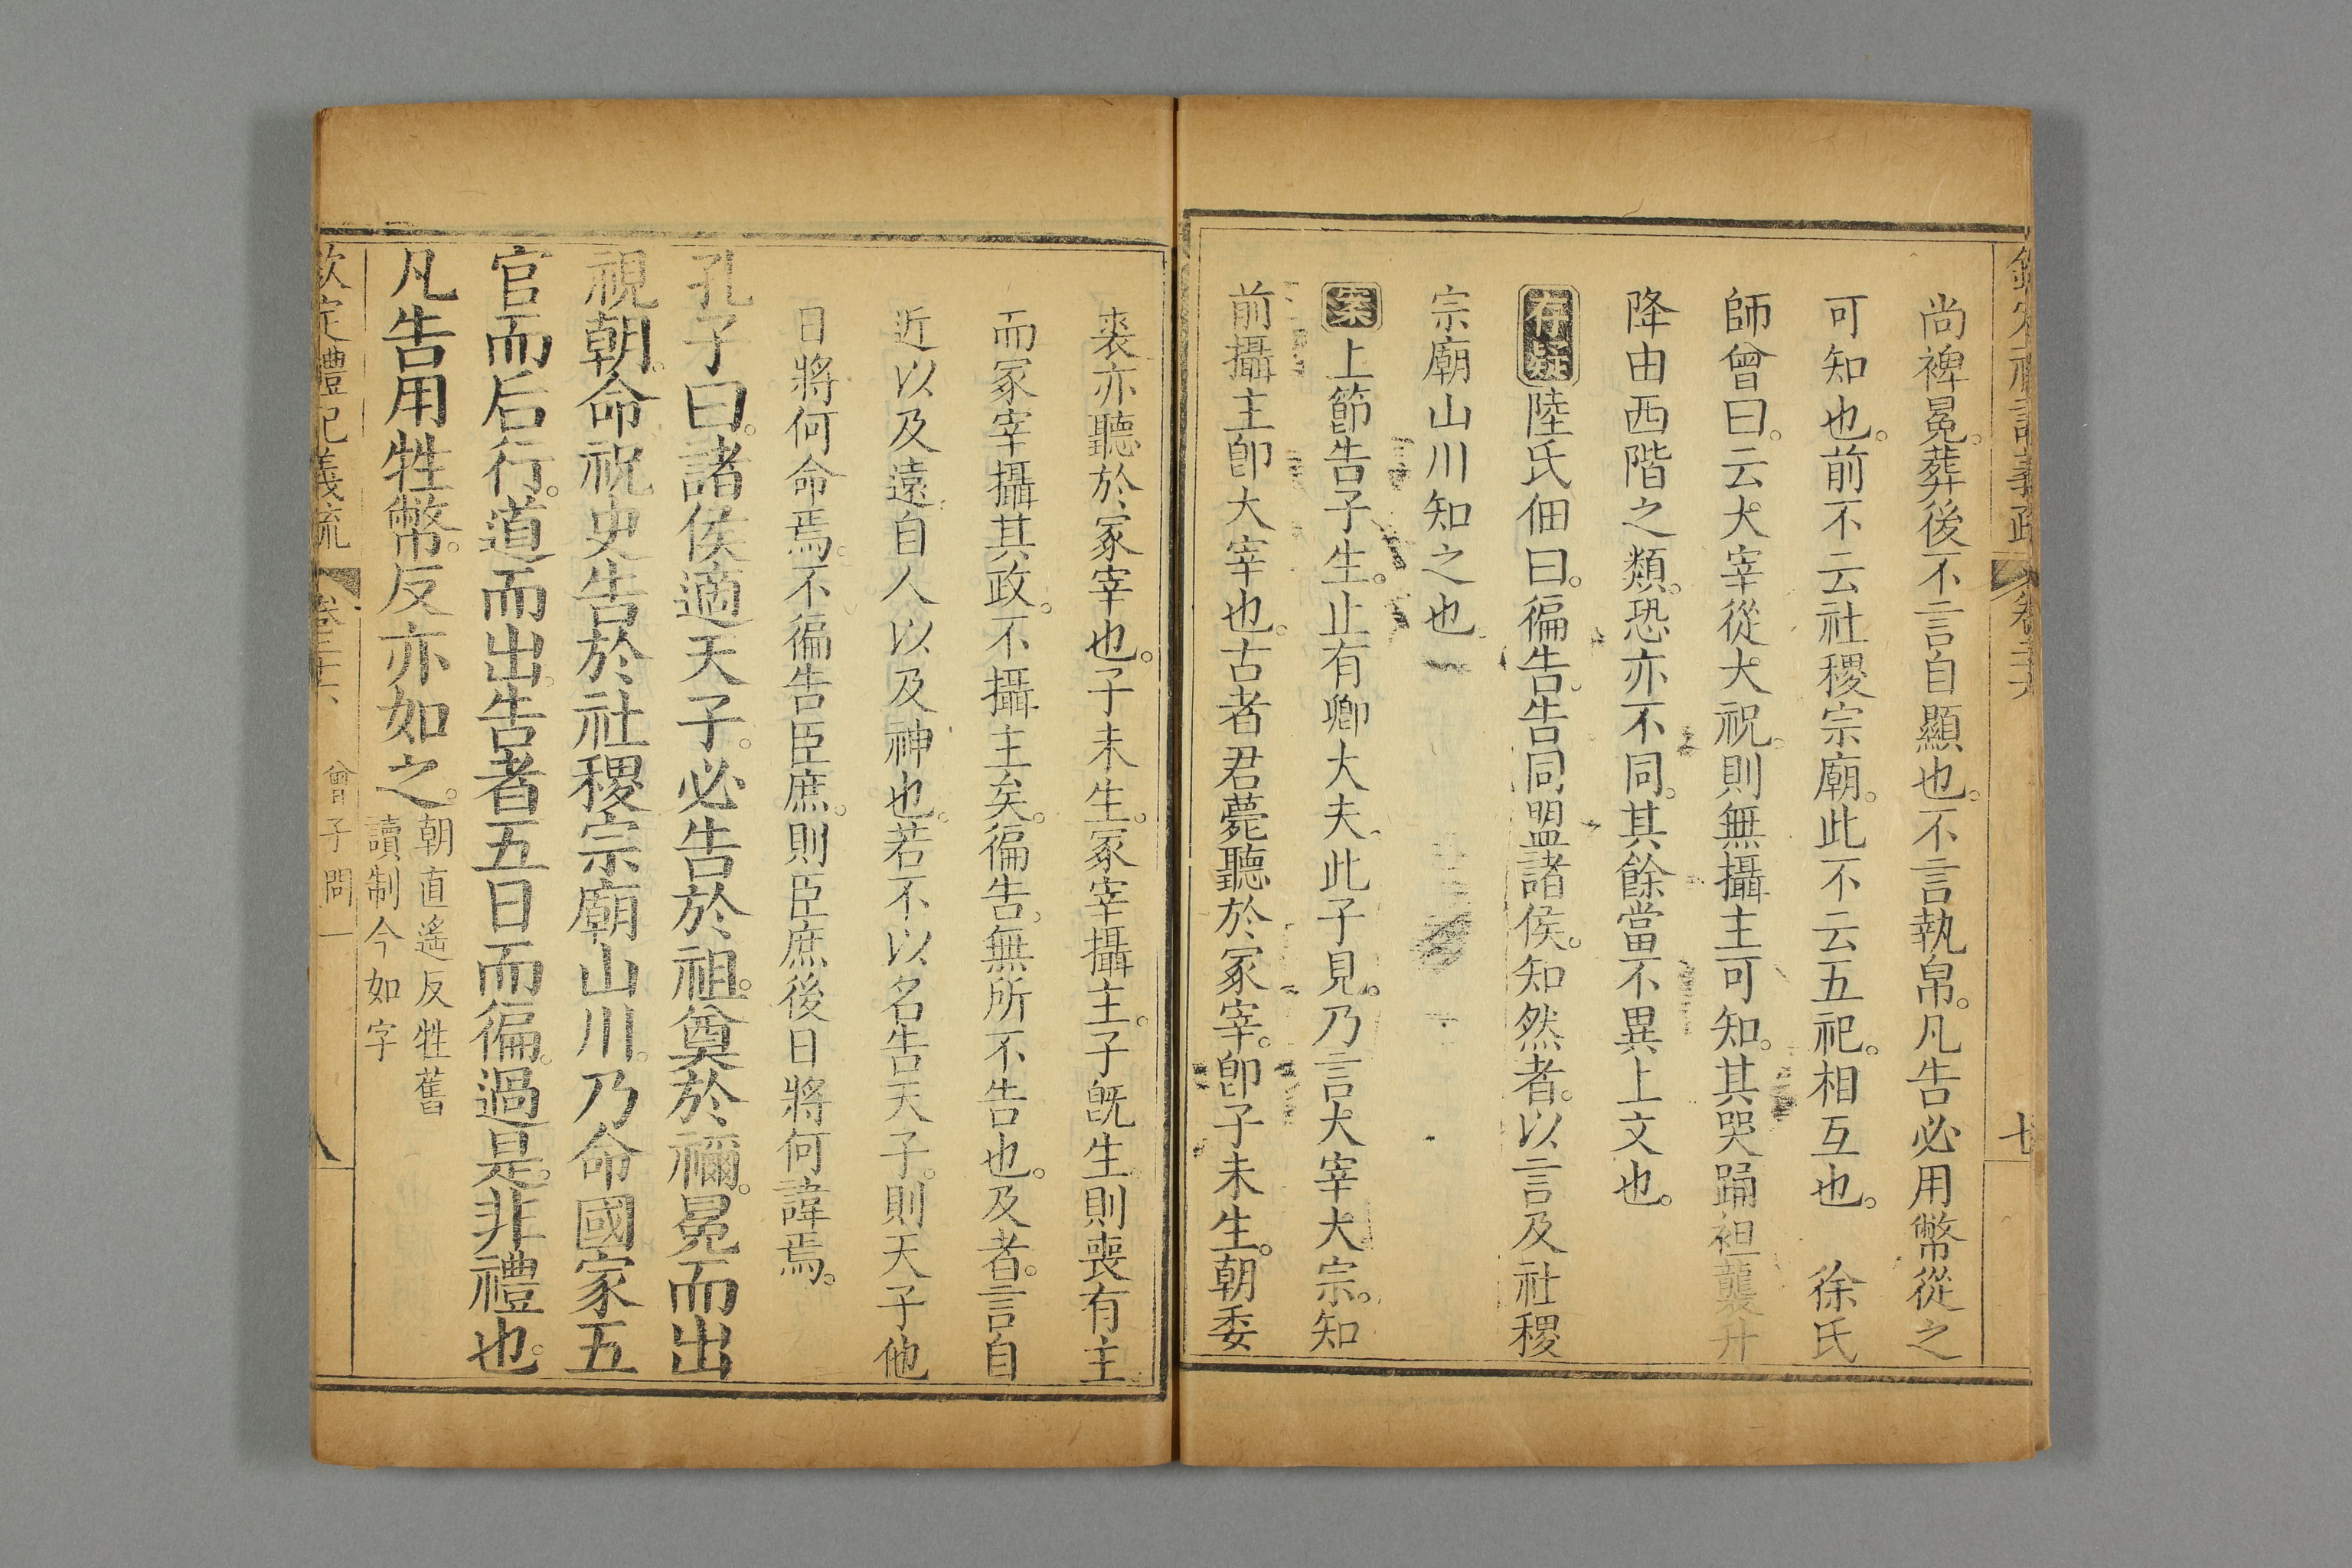 尚裨冕。葬後不言自顯也。不言執帛。凡告必用幣從之
可知也。前不云社稷宗廟。此不云五祀。相互也。　徐氏
師曾曰。云大宰從大祝。則無攝主可知。其哭踊袒襲升
降由西階之類。恐亦不同。其餘當不異上文也。
存疑陸氏佃曰。徧告。告同盟諸侯。知然者。以言及社稷
宗廟山川知之也。
案上節告子生。止有卿大夫。此子見。乃言大宰大宗。知
前攝主卽大宰也。古者君薨聽於冢宰。卽子未生。朝委
裘亦聽於冢宰也。子未生。冢宰攝主。子旣生。則喪有主
而冢宰攝其政。不攝主矣。徧告。無所不告也。及者。言自
近以及遠。自人以及神也。若不以名告天子。則天子他
日將何命焉。不徧告臣庶。則臣庶後日將何諱焉。
孔子曰。諸侯適天子。必告於祖。奠於禰。冕而出
視朝。命祝史告於社稷宗廟山川。乃命國家五
官而后行。道而出。告者五日而徧。過是。非禮也。
凡告用牲幣。反亦如之。朝直遙反牲舊
讀制今如字
欽定禮記義疏　卷二十六　曾子問一